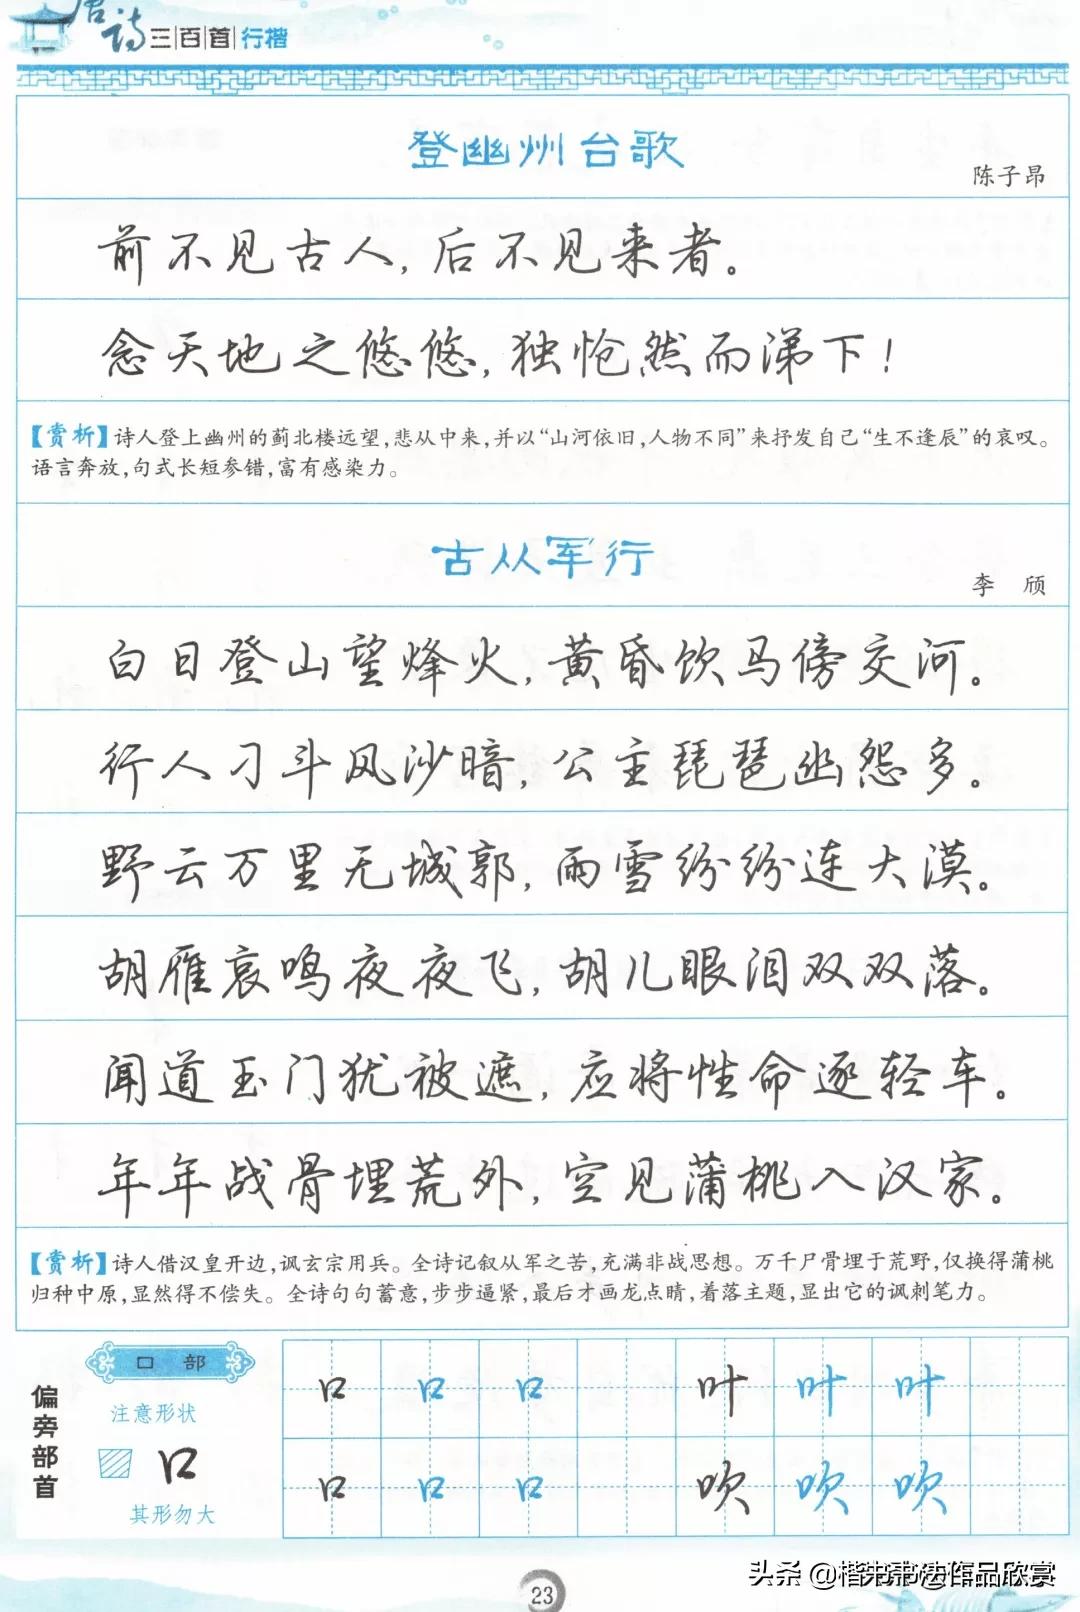 唐诗三百首行楷
登幽州台歌
陈子昂
前不见古人,后不见来者。
念天地之悠悠,独怆然而涕下!
【赏析】诗人登上幽州的蓟北楼远望,悲从中来,并以“山河依旧,人物不同”来抒发自己“生不逢辰”的哀叹。
语言奔放,句式长短参错,富有感染力。
古从军行
李 颀
白日登山望烽火,黄昏饮马傍交河。
行人刁斗风沙暗,公主琵琶幽怨多。
野云万里无城郭,雨雪纷纷连大漠。
胡雁哀鸣夜夜飞,胡儿眼泪双双落。
闻道玉门犹被遮,应将性命逐轻车。
年年战骨埋荒外,空见蒲桃入汉家。
【赏析】诗人借汉皇开边,讽玄宗用兵。全诗记叙从军之苦,充满非战思想。万千尸骨埋于荒野,仅换得蒲桃
归种中原,显然得不偿失。全诗句句蓄意,步步逼紧,最后才画龙点睛,着落主题,显出它的讽刺笔力。
偏旁部首
口 部
注意形状
口
其形勿大
口 口 口 叶 叶 叶
口 口 口 吹 吹 吹
23
头条 @楷书书法作品欣赏